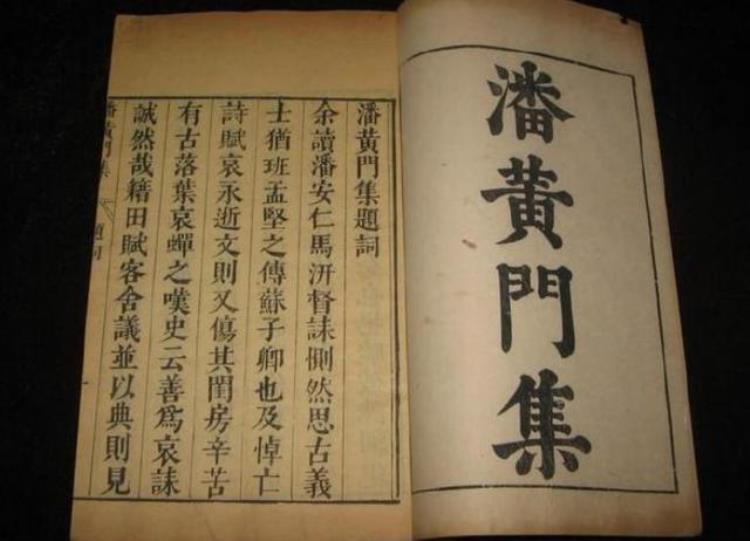 潘黃門集
潘黃門集題詞
余讀潘安仁馬汧督誄惻然思古義
士猶班孟堅之傳蘇子卿也及悼亡
詩賦哀永逝文則又傷其閨房辛苦
有古落葉哀蟬之嘆史云善爲哀誄
誠然哉籍田賦客舍議並以典則見
潘黃門集
題詞